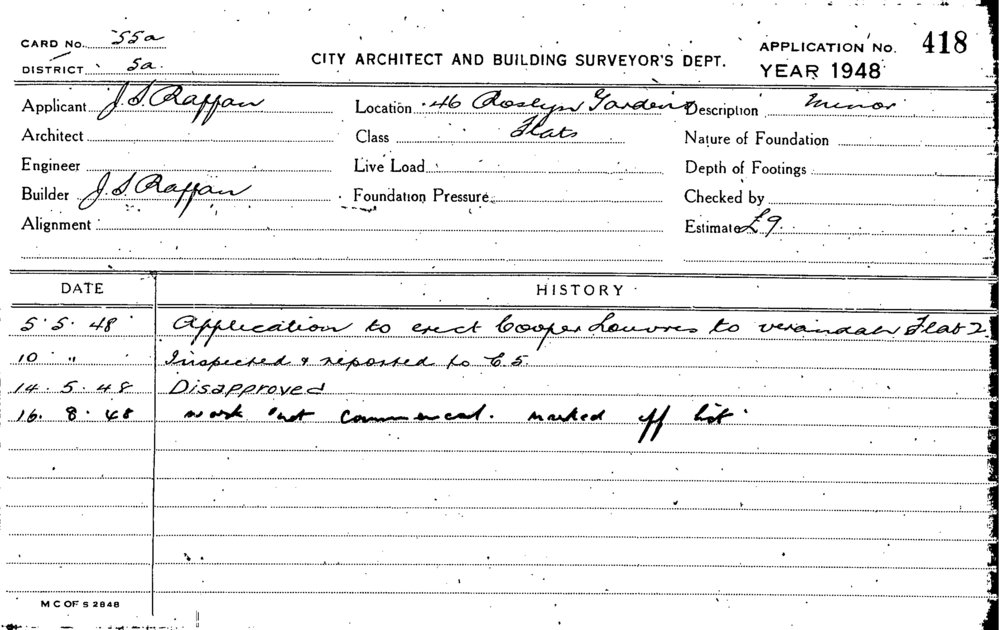 CARD No. 55a
DISTRICT 5a
CITY ARCHITECT AND BUILDING SURVEYOR'S DEPT.
APPLICATION No. 418
YEAR 1948
Applicant J.S. Raffan Location 46 Roslyn Gardens Description Minor
Architect Class Flats Nature of Foundation
Engineer Live Load Depth of Footings
Builder J.S. Raffan Foundation Pressure Checked by
Alignment Estimate £9.
DATE HISTORY
5.5.48 Application to erect Cooper Louvres to verandah Flat 2.
10 " Inspected & reported to C.S.
14.5.48 Disapproved
16.8.48 Work not commenced. marked off list.
M C OF S 2848